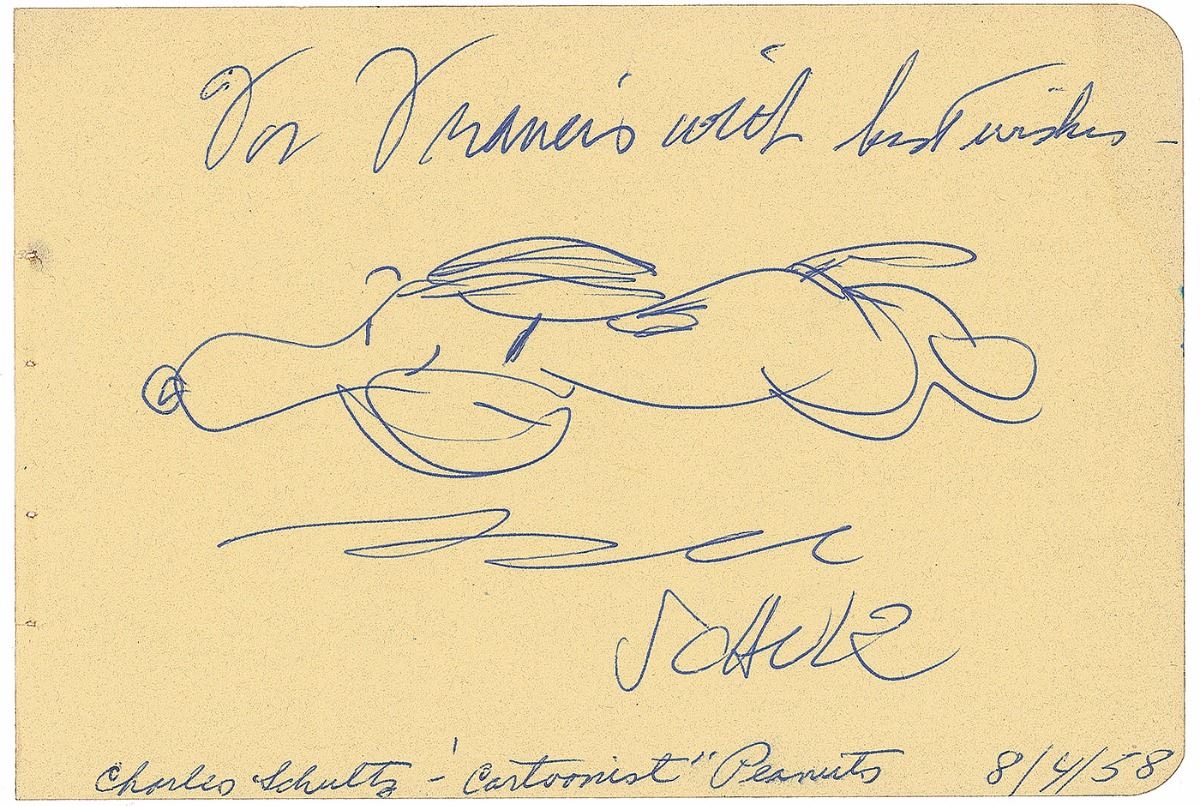 For Francis with best wishes –
SCHULZ
Charles Schultz - 'Cartoonist" Peanuts 8/4/58